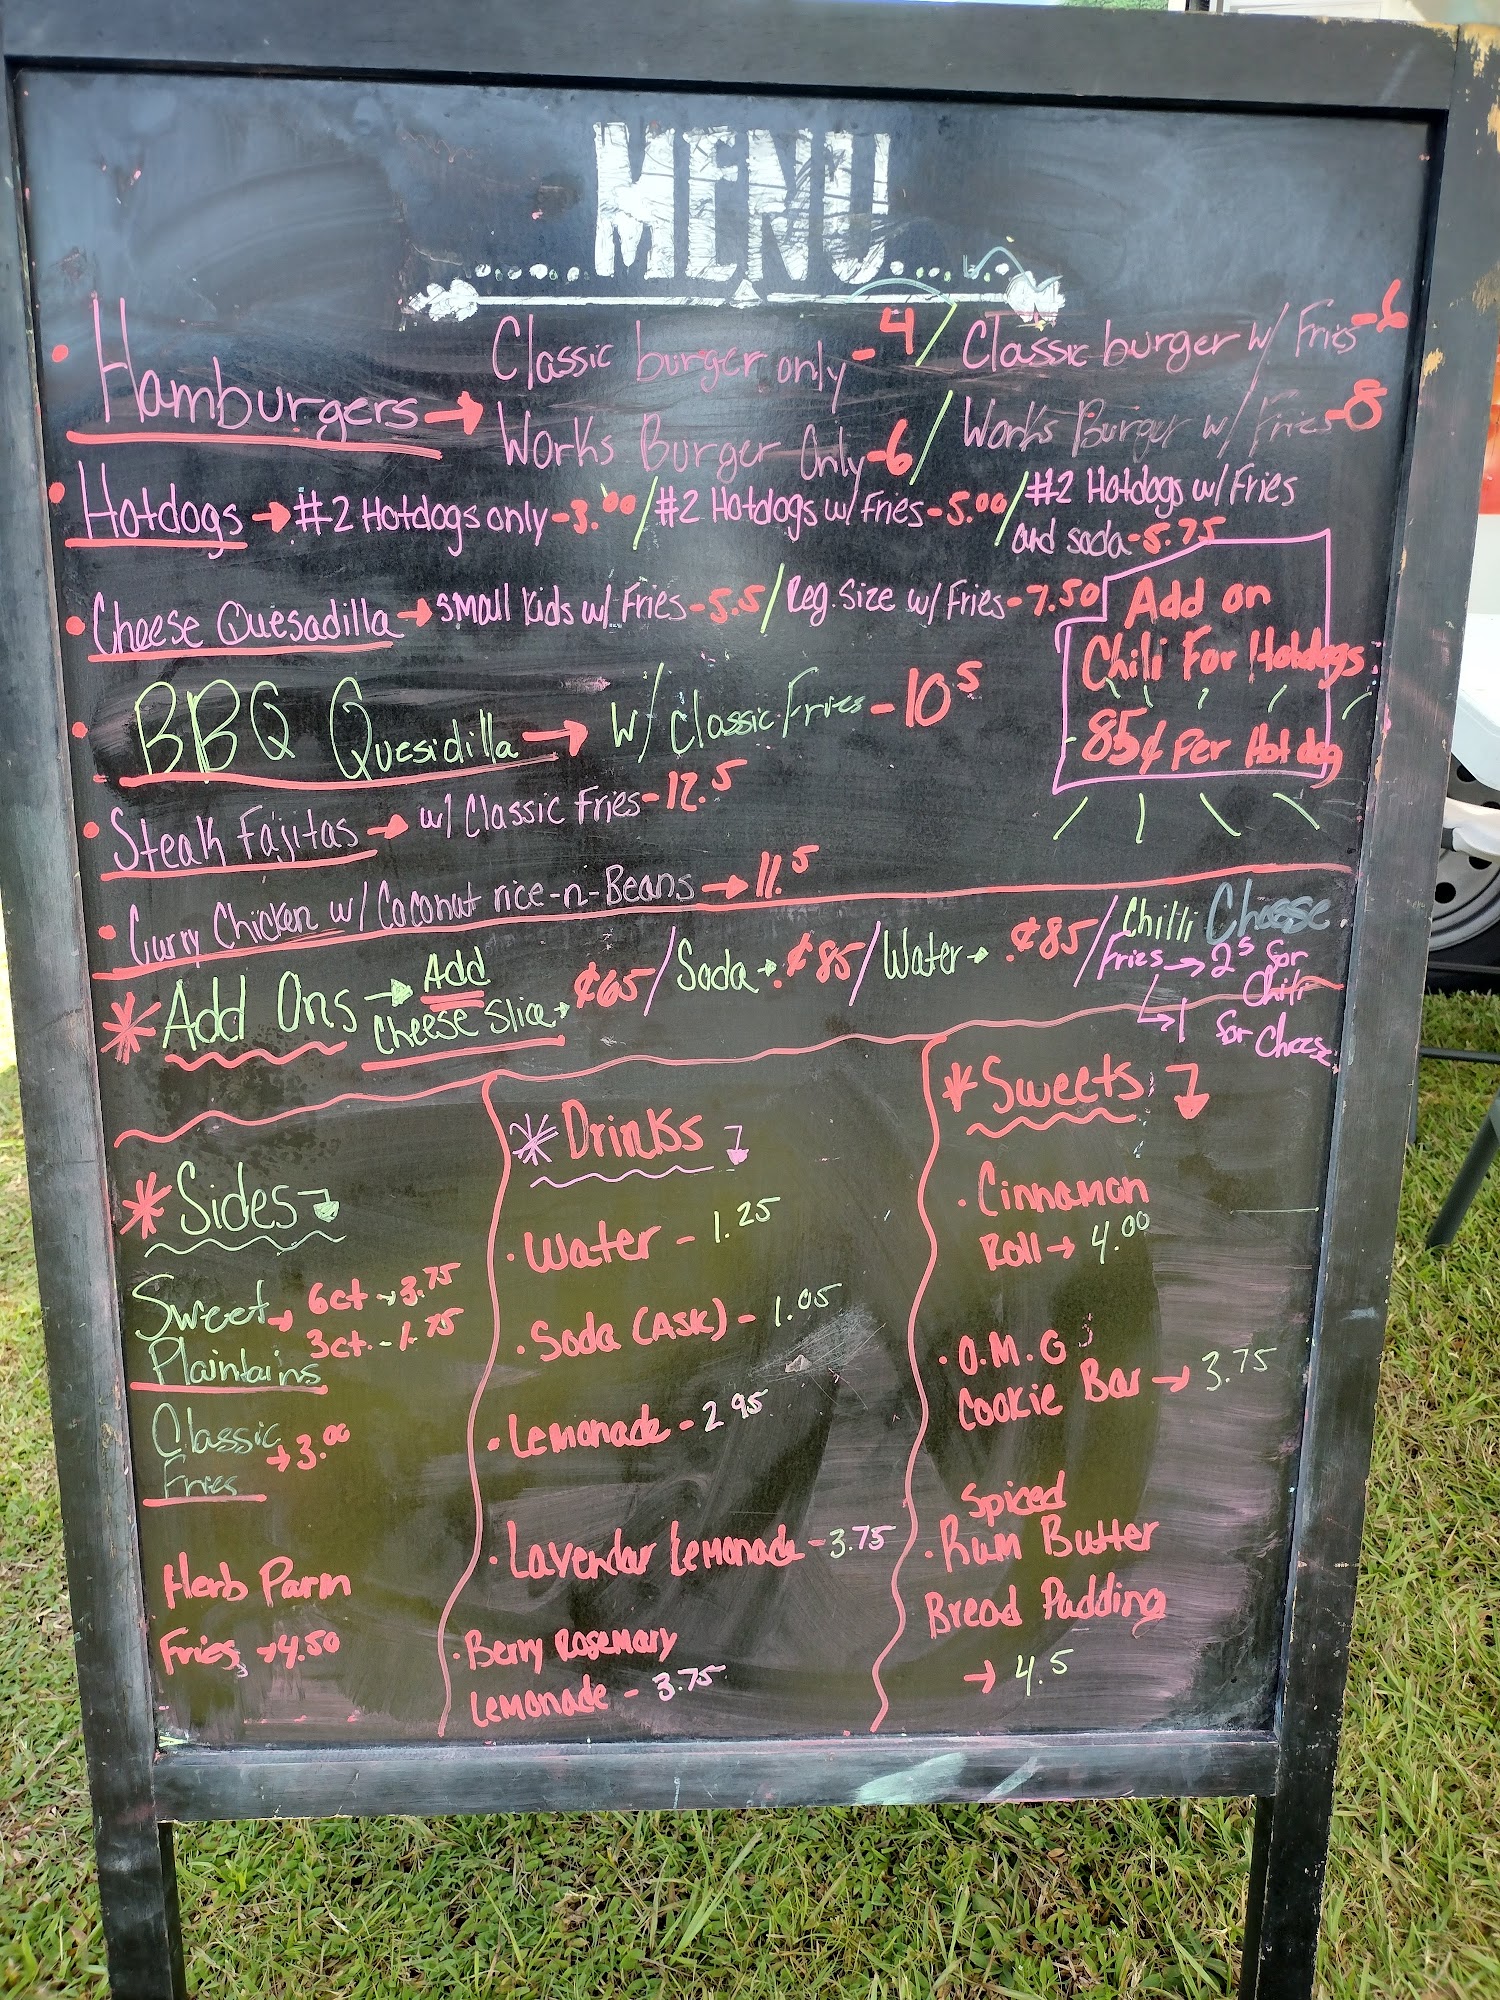 MENU
• Hamburgers → Classic burger only - 4 / Classic burger w/ Fries - 6
Works Burger Only - 6 / Works Burger w/ Fries - 8
• Hotdogs → #2 Hotdogs only - 3.00 / #2 Hotdogs w/ Fries - 5.00 / #2 Hotdogs w/ Fries
and soda - 5.75
• Cheese Quesadilla → small kids w/ Fries - 5.5 / Reg. Size w/ Fries - 7.50
Add on
Chili For Hotdogs
85¢ Per Hot dog
• BBQ Quesidilla → w/ Classic Fries - 10 5
• Steak Fajitas → w/ Classic Fries - 12.5
• Curry Chicken w/ Coconut rice-n-Beans → 11.5
* Add Ons → Add
Cheese Slice → ¢65 / Soda → ¢85 / Water → .¢85 / Chilli Cheese
Fries → 2 5 for
Chili
↳ 1 for Cheese
* Sides
Sweet → 6ct → 3.75
3ct - 1.75
Plaintains
Classic → 3.00
Fries
Herb Parm
Fries → 4.50
* Drinks
• Water - 1.25
• Soda (ASK) - 1.05
• Lemonade - 2.95
• Lavendar Lemonade - 3.75
• Berry Rosemary
Lemonade - 3.75
* Sweets
• Cinnamon
Roll → 4.00
• O.M.G
Cookie Bar → 3.75
Spiced
• Rum Butter
Bread Pudding
→ 4.5